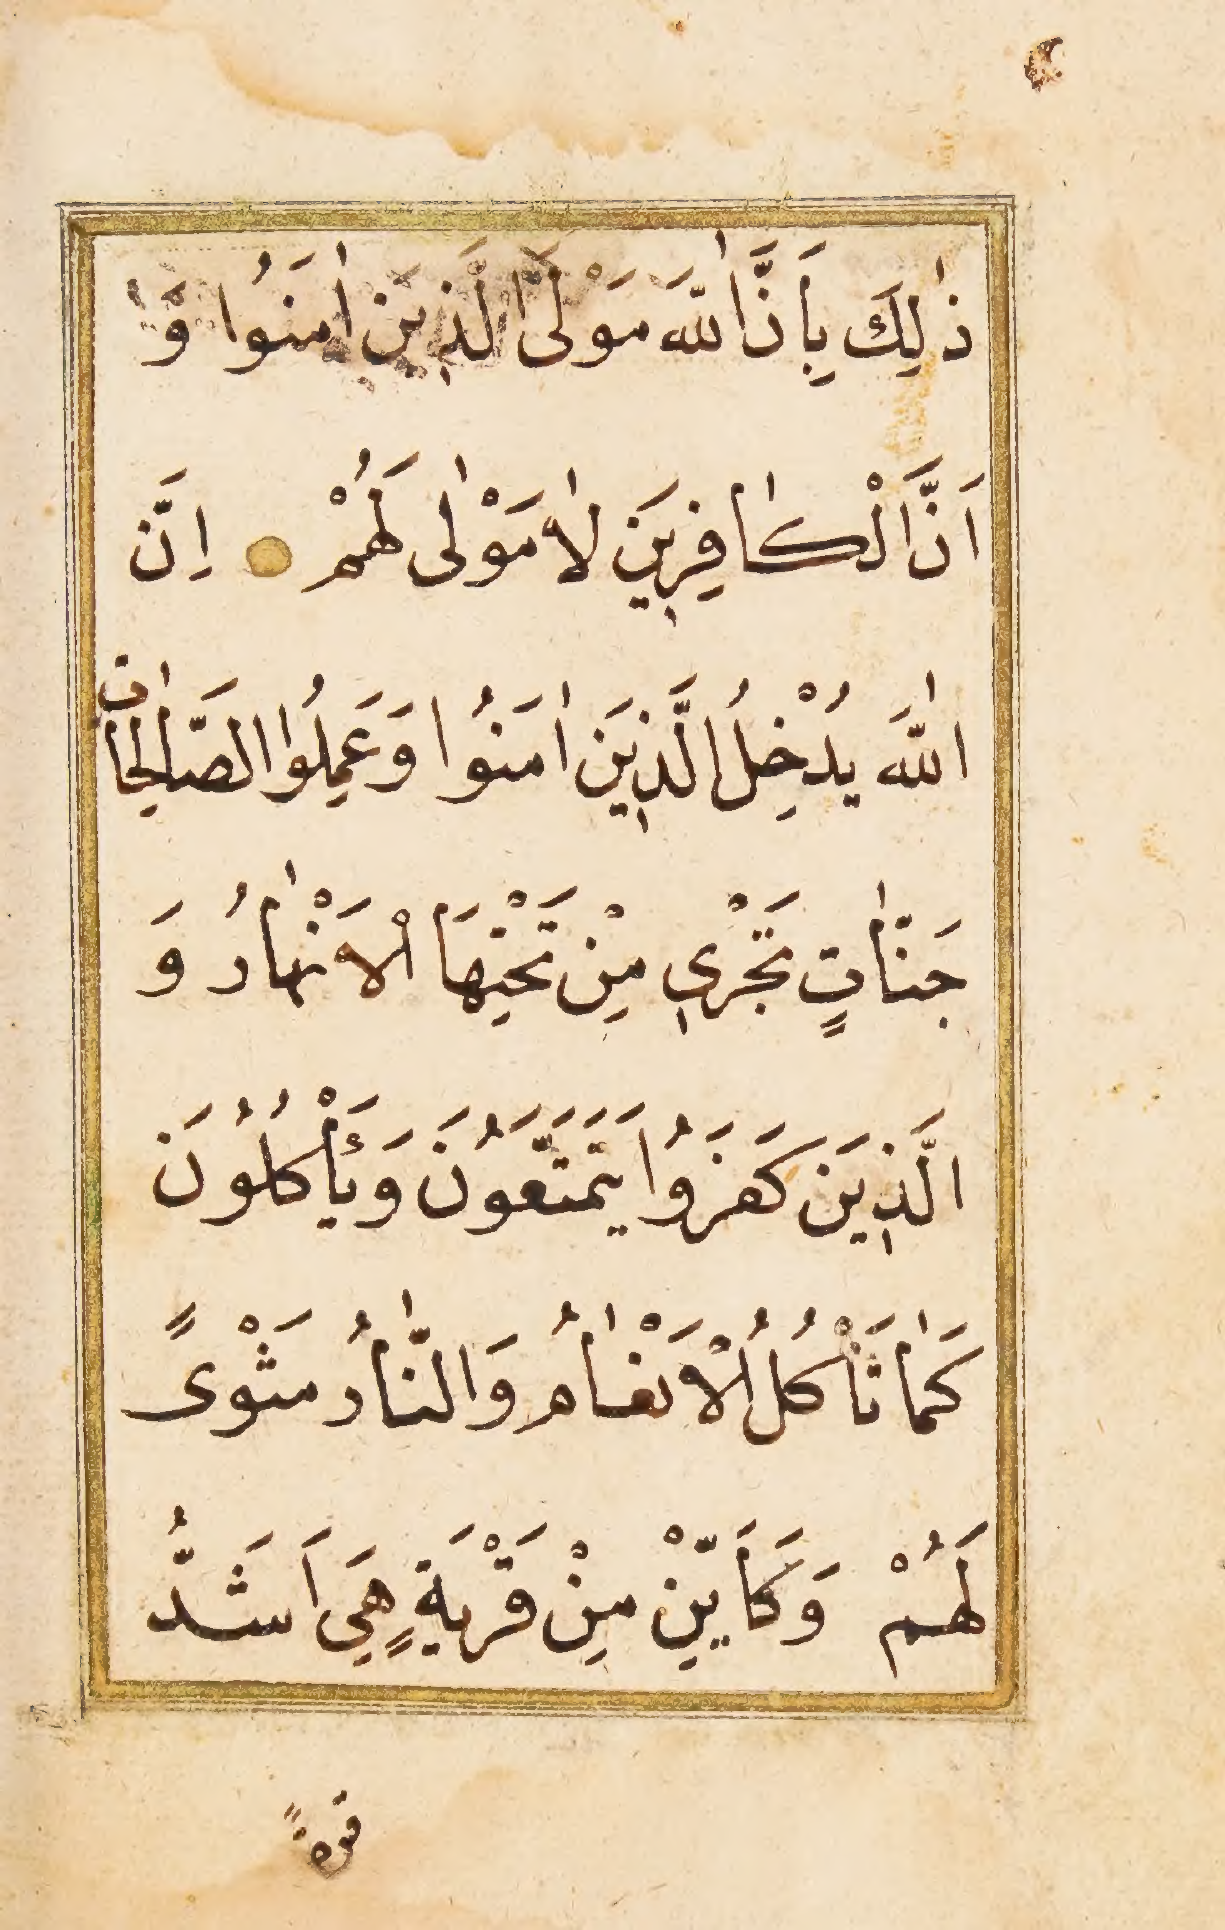 ذٰلِكَ بِاَنَّ اللّٰهَ مَوْلَى الَّذِينَ اٰمَنُوا وَ
اَنَّ الْكٰافِرِينَ لٰا مَوْلٰى لَهُمْ اِنَّ
اللّٰهَ يُدْخِلُ الَّذِينَ اٰمَنُوا وَعَمِلُوا الصّٰالِحٰاتِ
جَنّٰاتٍ تَجْرِي مِنْ تَحْتِهَا الْاَنْهٰارُ وَ
الَّذِينَ كَفَرُوا يَتَمَتَّعُونَ وَيَأْكُلُونَ
كَمٰا تَأْكُلُ الْاَنْعٰامُ وَالنّٰارُ مَثْوىً
لَهُمْ وَكَاَيِّنْ مِنْ قَرْيَةٍ هِيَ اَشَدُّ
قوةً